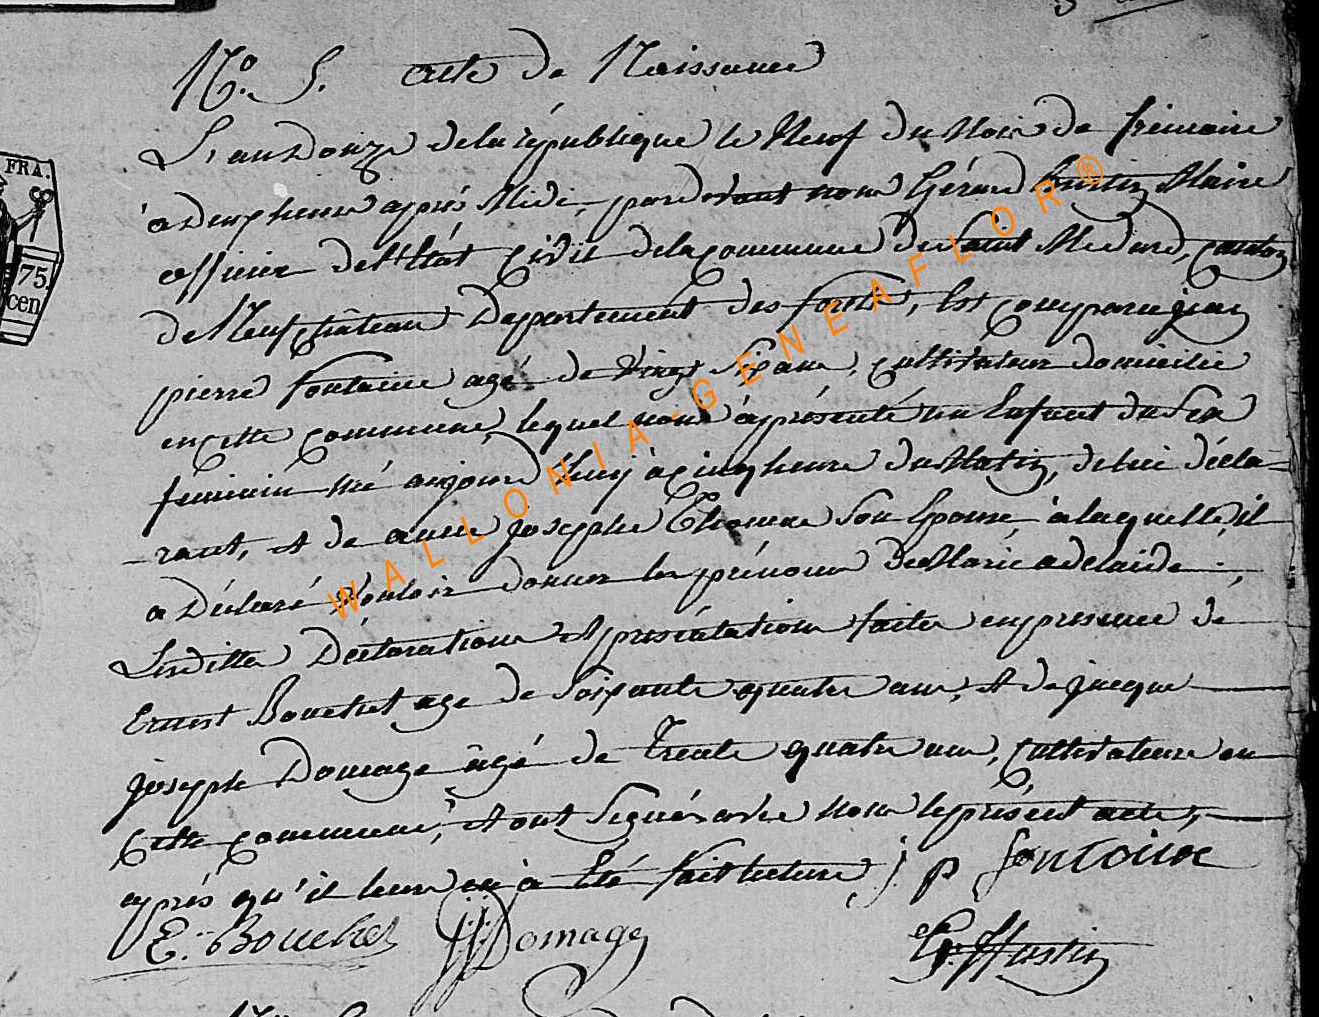 N.o 5. acte de Naissance
L'an Douze de la république le Neuf du Mois de frimaire
a deux heure après Midi, pardevant nous Gérard hustin Maire
officier de l'état Civil de la Commune de Saint Médard, Canton
de Neufchâteau Département des forêts, Est Comparu jean
pierre fontaine agé de vingt Six ans, Cultivateur domicilié
en Cette Commune, lequel nous à présenté un Enfant du Sexe
feminin né aujourd'huy à Cinq heure du Matin, de lui décla=
-rant, et de anne josephe Thomme Son Epouse à laquelle il
a Déclaré Vouloir donner les prénoms de Marie adelaide .,
Lesdittes Déclarations et présentation faites en présence de
Ernest Bouchet age de Soixante quatre ans, et de jacque
joseph Domage âgé de Trente quatre ans, Cultivateurs en
Cette Commune, et ont Signés avec nous le présent acte,
après qu'il leurs en à Eté fait lecture, j p fontaine
E. Bouchet JJ Domage G. Hustin
FRA.
75.
cen
WALLONIA-GENEAFLOR®